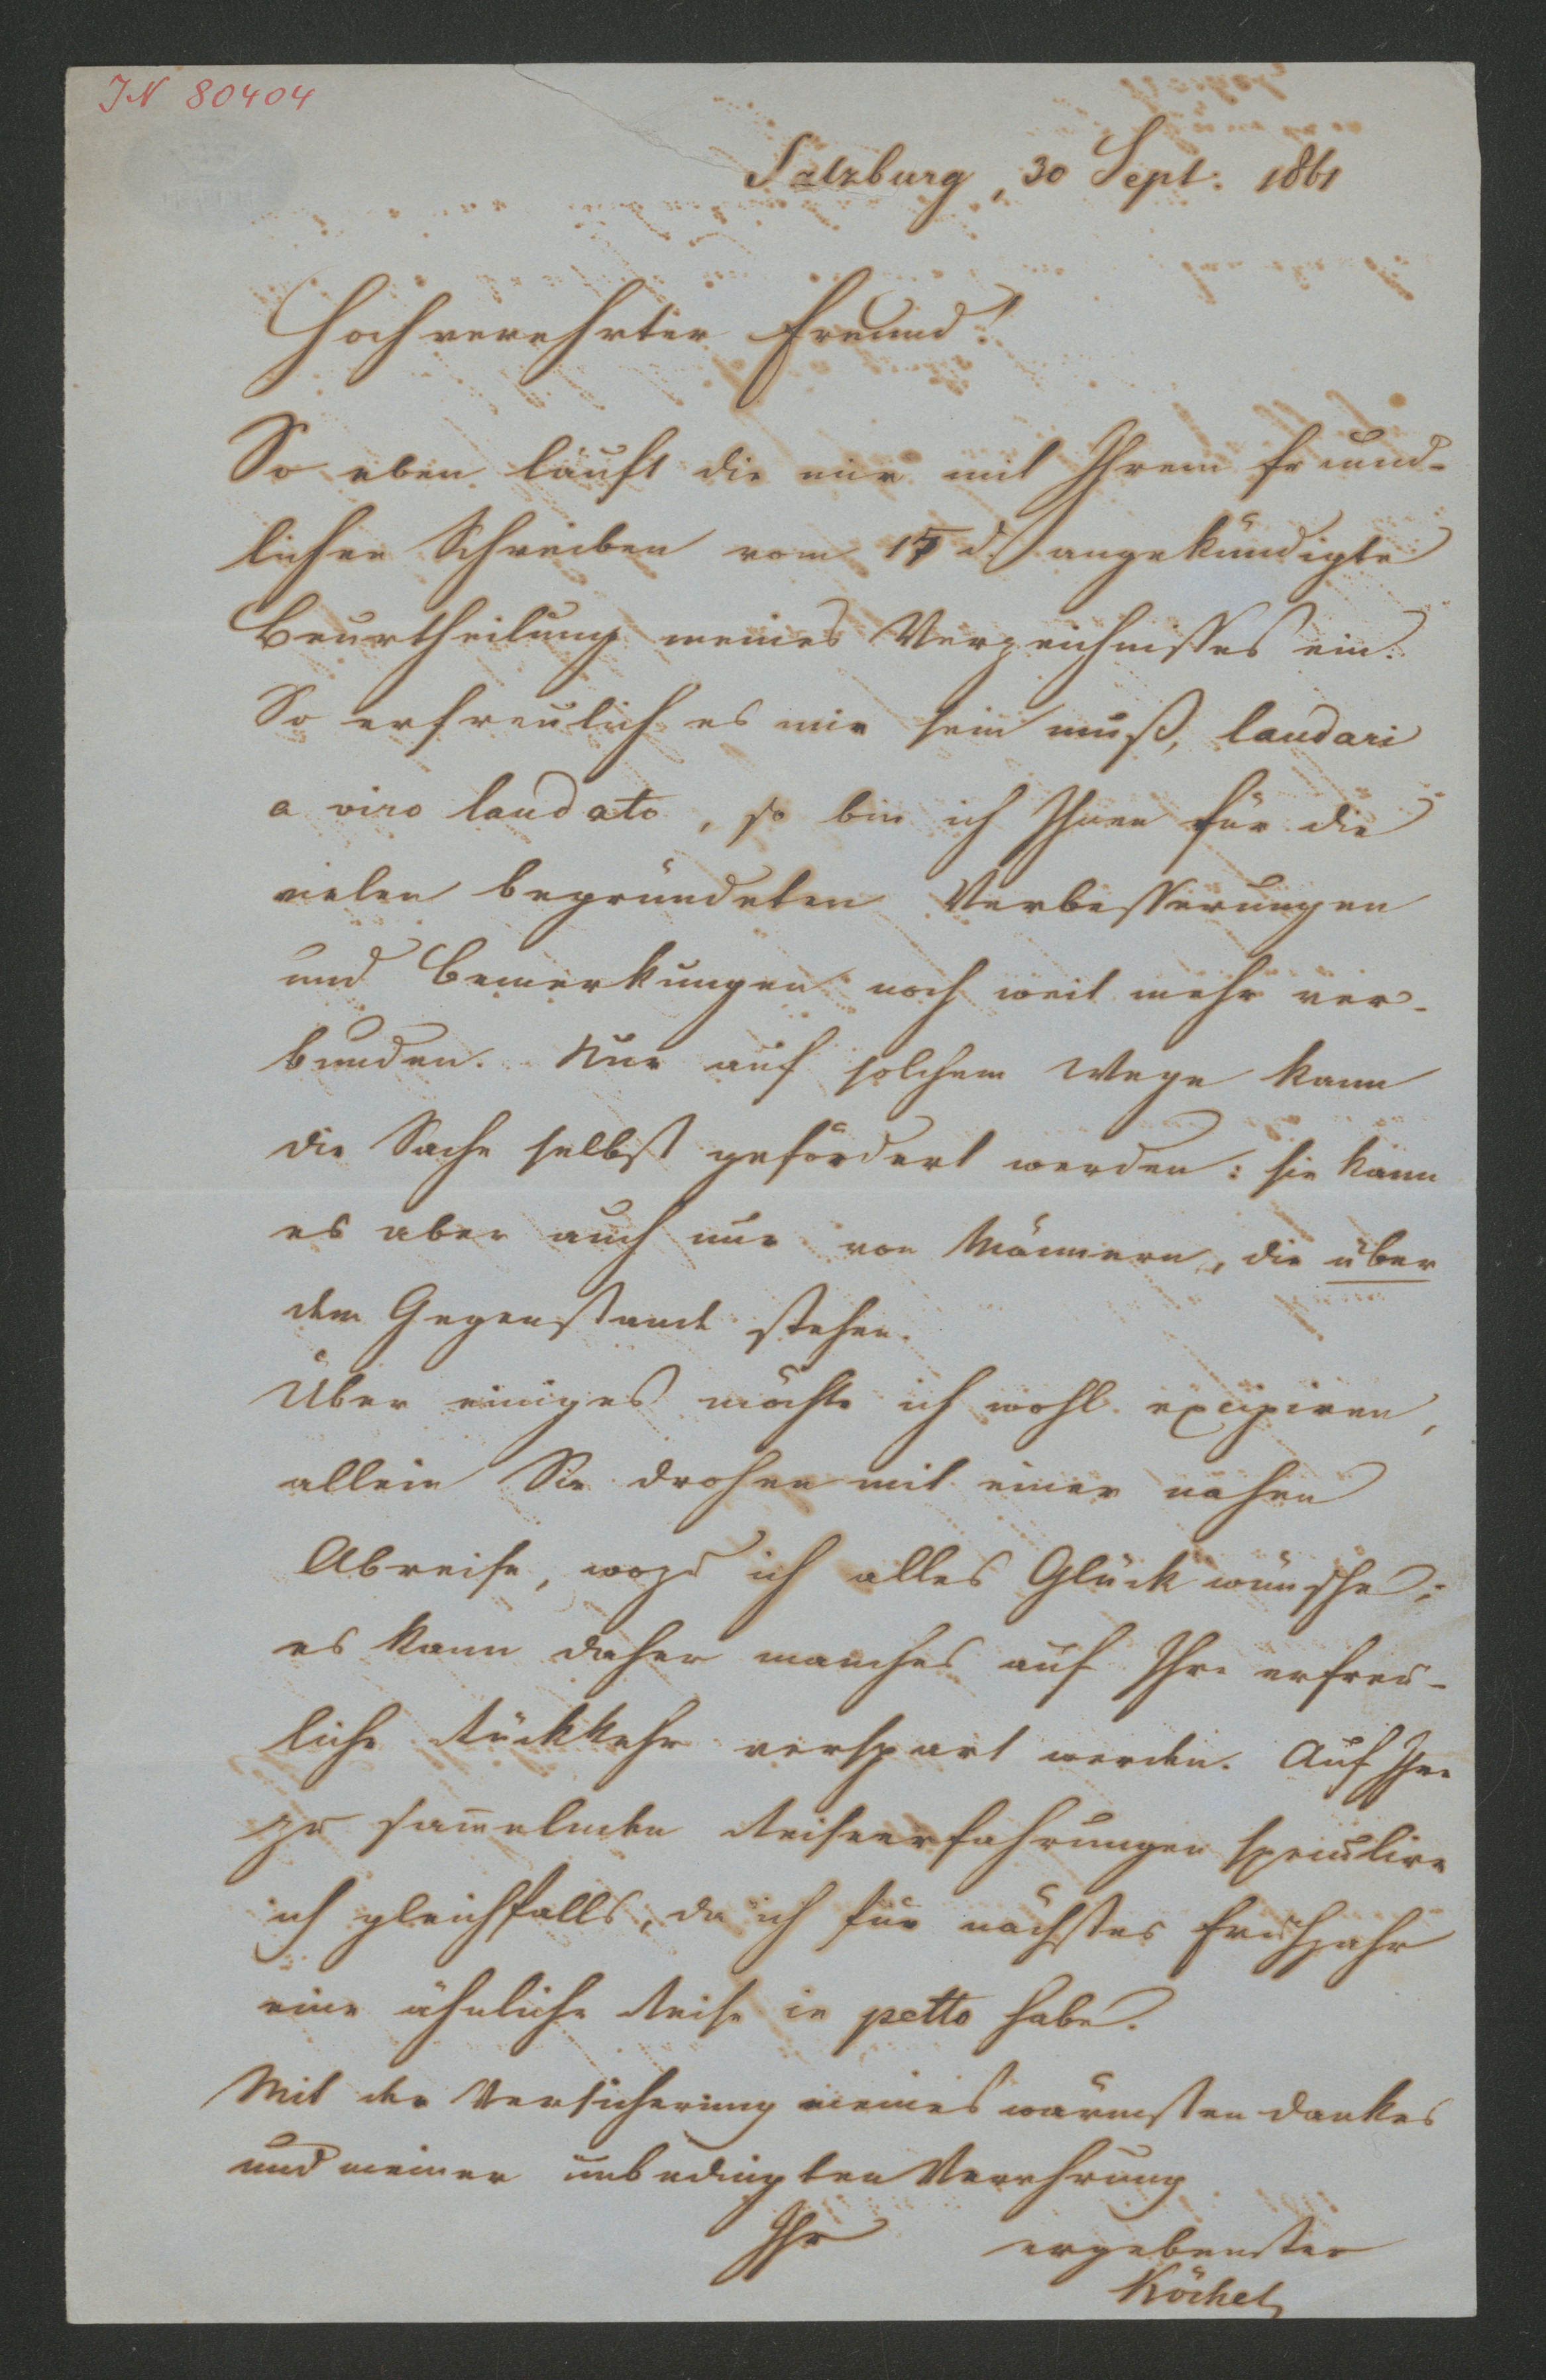 IN 80404
Salzburg, 30 Sept. 1861
Hochverehrter Freund!
So eben läuft die mir mit Ihrem freund-
lichen Schreiben vom 17 d. angekündigte
Beurtheilung meines Verzeichnisses ein.
So erfreulich es mir sein muß, laudari
a viro laudato, so bin ich Ihnen für die
vielen begründeten Verbesserungen
und Bemerkungen noch weit mehr ver-
bunden. Nur auf solchem Wege kann
die Sache selbst gefördert werden: sie kann
es aber auch nur von Männern, die über
dem Gegenstande stehen.
Über einiges möchte ich wohl excipiren,
allein Sie drohen mit einer nahen
Abreise, wozu ich alles Glück wünsche;
es kann daher manches auf Ihre erfreu-
liche Rückkehr verspart werden. Auf Ihre
zu sam̅elnden Reiseerfahrungen speculire
ich gleichfalls, da ich für nächstes Frühjahr
eine ähnliche Reise in petto habe.
Mit der Versicherung meines wärmsten Dankes
und meiner unbedingten Verehrung
Ihr ergebenster
Köchel